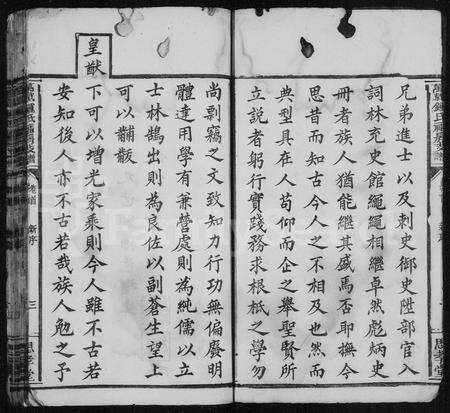 兄弟進士以及刺史御史陞部官入
詞林充史館繩繩相繼卓然彪炳史
冊者族人猶能繼其盛焉否耶撫今
思昔而知古今人之不相及也然而
典型具在人苟仰而企之舉聖賢所
立説者躬行實踐務求根柢之學勿
尚剽竊之文致知力行功無偏廢明
體達用學有兼營處則為純儒以立
士林鵠出則為良佐以副蒼生望上
可以黼黻
皇猷下可以增光家乘則今人雖不古若
安知後人亦不古若哉族人勉之予
新序
三
思孝堂